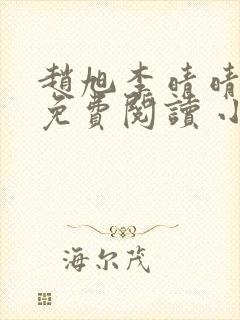 趙旭李晴晴
免費閱讀小
海尔茂